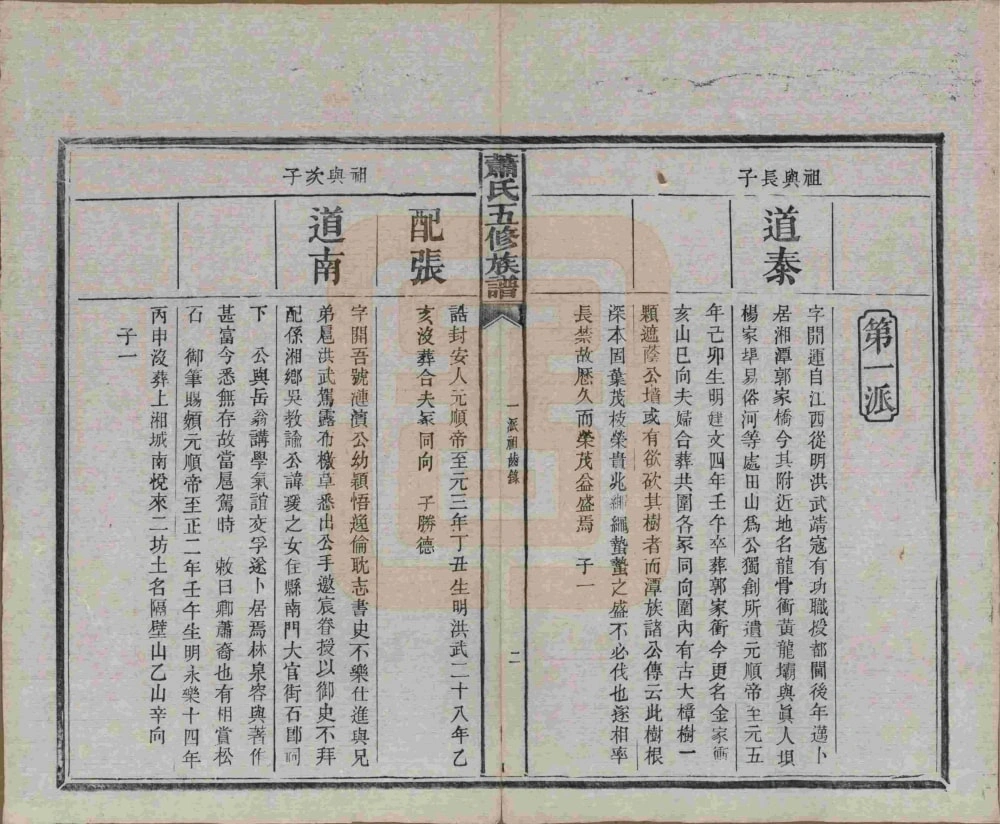 第一派
祖與長子
道泰
字開運自江西從明洪武靖寇有功職授都閫後年邁卜
居湘潭郭家橋今其附近地名龍骨衝黃龍壩與眞人垻
楊家埠易俗河等處田山爲公獨創所遺元順帝至元五
年己卯生明建文四年壬午卒葬郭家衝今更名金家衝
亥山巳向夫婦合葬共圍各冢同向圍內有古大樟樹一
顆遮蔭公墻或有欲砍其樹者而潭族諸公傳云此樹根
深本固葉茂枝榮貴兆繩繩蟄蟄之盛不必伐也遂相率
長禁故歷久而榮茂益盛焉　子一
蕭氏五修族譜
一派祖齒錄
二
配張
誥封安人元順帝至元三年丁丑生明洪武二十八年乙
亥沒葬合夫冢同向　子勝德
祖與次子
道南
字開吾號漣濱公幼穎悟邁倫耽志書史不樂仕進與兄
弟扈洪武駕露布檄草悉出公手邀宸眷授以御史不拜
配係湘鄉吳教諭公諱瑗之女住縣南門大官街石即祠
下　公與岳翁講學氣誼交孚遂卜居焉林泉容與著作
甚富今悉無存故當扈駕時　敕曰卿蕭裔也有相賞松
石　御筆賜額元順帝至正二年壬午生明永樂十四年
丙申沒葬上湘城南悅來二坊土名隔壁山乙山辛向
子一